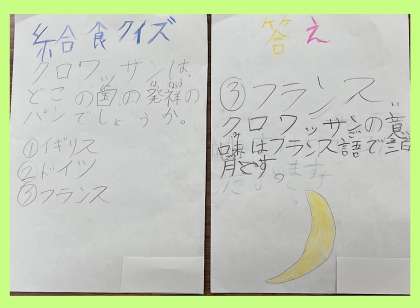 給食クイズ
クロワッサンは、
どこの国の発祥の
パンでしょうか。
①イギリス
②ドイツ
③フランス
答え
③フランス
クロワッサンの意
味はフランス語で三日
月です。